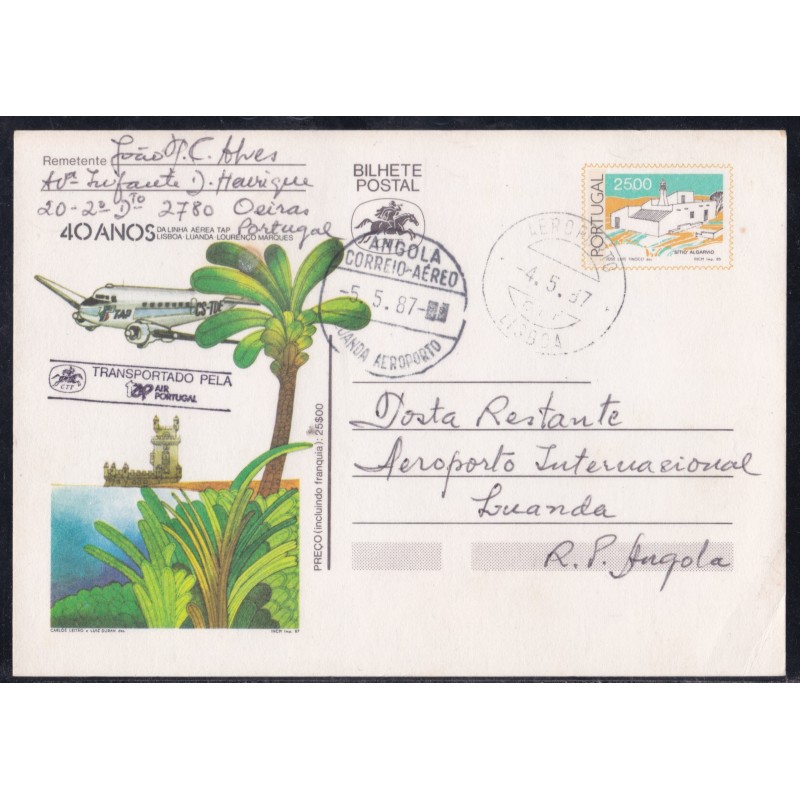 Remetente João M. C. Alves
Avª Infante D. Henrique
20-2º Dto 2780 Oeiras
Portugal
40 ANOS DA LINHA AEREA TAP
LISBOA·LUANDA·LOURENÇO MARQUES
BILHETE
POSTAL
PORTUGAL
25.00
SITIO ALGARVIO
INCM Imp. 85
ANGOLA
CORREIO-AÉREO
-5. 5. 87-
LUANDA AEROPORTO
-4. 5. 87
LISBOA
TAP
CS-TDE
CTT
TRANSPORTADO PELA
tap AIR
PORTUGAL
PREÇO (incluindo franquia): 25$00
Posta Restante
Aeroporto Internacional
Luanda
R. P. Angola
CARLOS LEITÃO e LUIZ DURAN des.
INCM Imp. 87